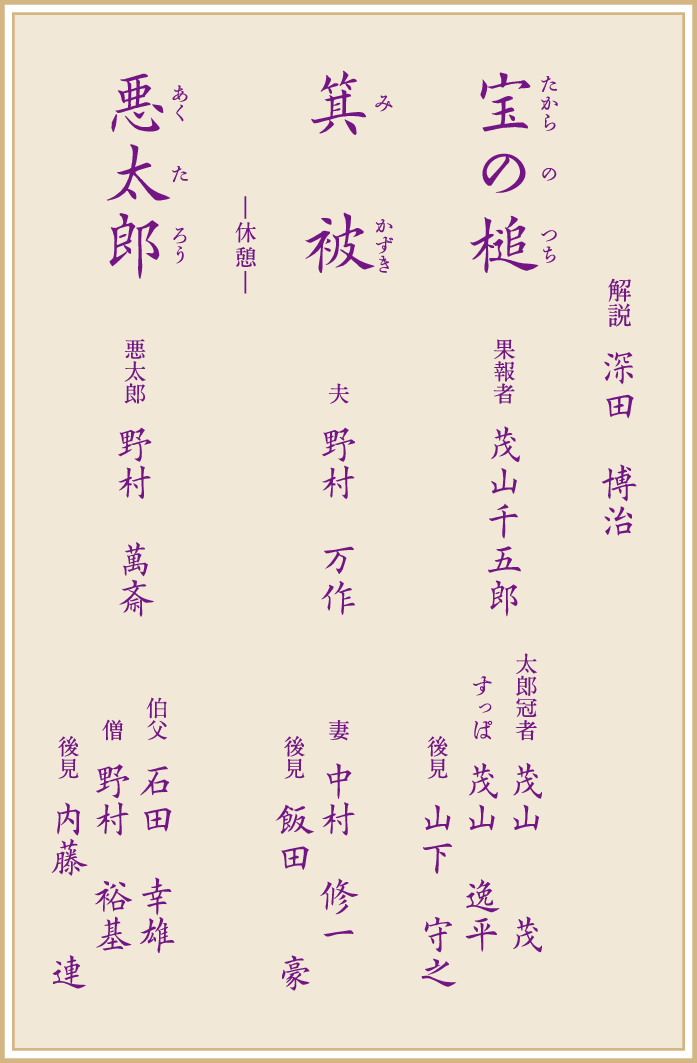 解説 深田 博治
宝の槌
たからのつち
果報者 茂山千五郎
太郎冠者 茂山 茂
すっぱ 茂山 逸平
後見 山下 守之
箕被
みかずき
夫 野村 万作
妻 中村 修一
後見 飯田 豪
―休憩―
悪太郎
あくたろう
悪太郎 野村 萬斎
伯父 石田 幸雄
僧 野村 裕基
後見 内藤 連